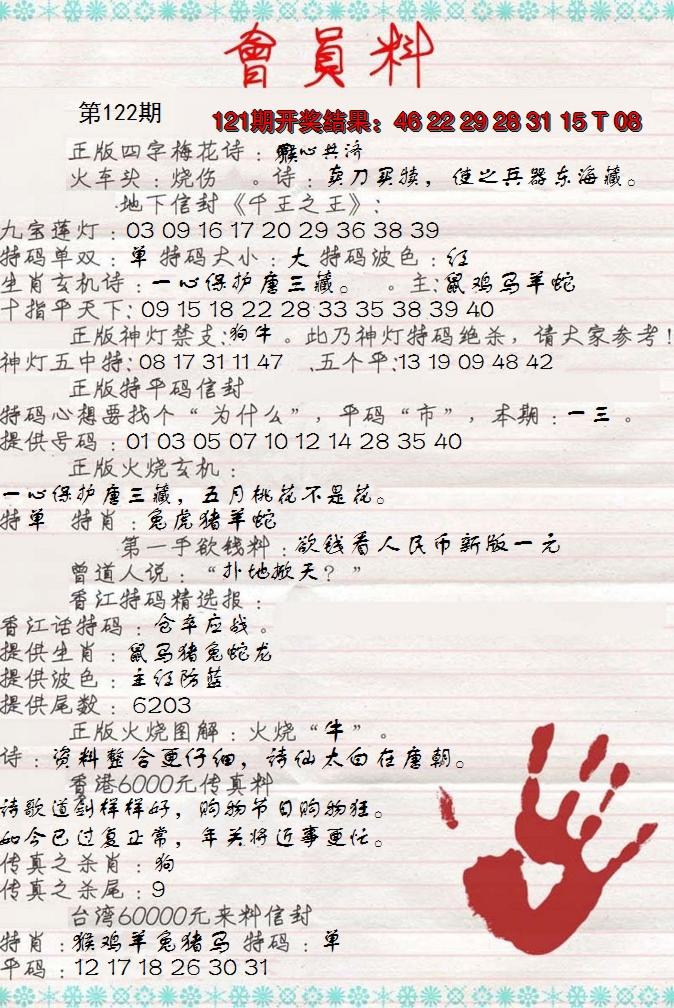 會員料
第122期
121期开奖结果：46 22 29 28 31 15 T 08
正版四字梅花诗：猴心共济
火车头：烧伤 。诗：卖刀买犊，使之兵器东海藏。
地下信封《千王之王》：
九宝莲灯：03 09 16 17 20 29 36 38 39
特码单双：单 特码大小：大 特码波色：红
生肖玄机诗：一心保护唐三藏。 。主：鼠鸡马羊蛇
十指平天下：09 15 18 22 28 33 35 38 39 40
正版神灯禁支：狗牛 。此乃神灯特码绝杀，请大家参考！
神灯五中特：08 17 31 11 47 .五个平：13 19 09 48 42
正版特平码信封
特码心想要找个“为什么”，平码“市”，本期：一三 。
提供号码：01 03 05 07 10 12 14 28 35 40
正版火烧玄机：
一心保护唐三藏，五月桃花不是花。
特单 特肖：兔虎猪羊蛇
第一手欲钱料：欲钱看人民币新版一元
曾道人说：“扑地掀天？”
香江特码精选报：
香江话特码：仓卒应战。
提供生肖：鼠马猪兔蛇龙
提供波色：主红防蓝
提供尾数：6203
正版火烧图解：火烧“牛”。
诗：资料整合更仔细，诗仙太白在唐朝。
香港6000元传真料
诗歌道到样样好，购物节日购物狂。
如今已过复正常，年关将近事更忙。
传真之杀肖：狗
传真之杀尾：9
台湾60000元来料信封
特肖：猴鸡羊兔猪马 特码：单
平码：12 17 18 26 30 31